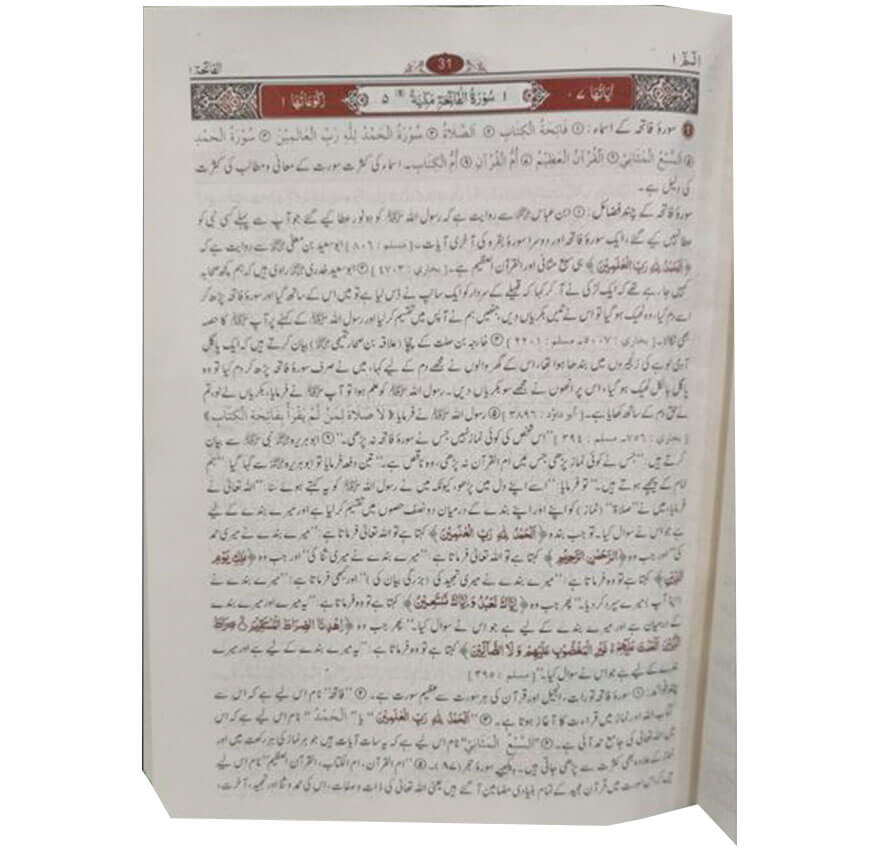 الٓمّٓ ۱ 31 الفاتحۃ ۱
اٰیاتھا ۷ ۱ سُوْرَةُ الْفَاتِحَةِ مَكِّيَّةٌ ۵ رکوعاتھا ۱
❶ سورۂ فاتحہ کے اسماء: ① فَاتِحَةُ الْكِتَابِ ② اَلصَّلَاةُ ③ سُوْرَةُ الْحَمْدُ لِلّٰهِ رَبِّ الْعَالَمِيْنَ ④ سُوْرَةُ الْحَمْدِ
⑤ اَلسَّبْعُ الْمَثَانِيْ ⑥ اَلْقُرْآنُ الْعَظِيْمُ ⑦ اُمُّ الْقُرْآنِ ⑧ اُمُّ الْكِتَابِ۔ اسماء کی کثرت سورت کے معانی و مطالب کی کثرت
کی دلیل ہے۔
سورۂ فاتحہ کے چند فضائل: ① ابن عباس رضی اللہ عنہما سے روایت ہے کہ رسول اللہ ﷺ کو دو نور عطا کیے گئے جو آپ سے پہلے کسی نبی کو
عطا نہیں کیے گئے، ایک سورۂ فاتحہ اور دوسرا سورۂ بقرہ کی آخری آیات۔ [مسلم : ۸۰۶] ابو سعید بن معلیٰ رضی اللہ عنہ سے روایت ہے کہ
﴿اَلْحَمْدُ لِلّٰهِ رَبِّ الْعٰلَمِيْنَ﴾ ہی سبع مثانی اور القرآن العظیم ہے۔ [بخاری : ۴۷۰۳] ③ ابو سعید خدری رضی اللہ عنہ راوی ہیں کہ ہم کچھ صحابہ
کہیں جا رہے تھے کہ ایک لڑکی نے آ کر کہا کہ قبیلے کے سردار کو ایک سانپ نے ڈس لیا ہے تو میں اس کے ساتھ گیا اور سورۂ فاتحہ پڑھ کر
اسے دم کیا، وہ ٹھیک ہو گیا تو اس نے تیس بکریاں دیں، جنھیں ہم نے آپس میں تقسیم کر لیا اور رسول اللہ ﷺ کے کہنے پر آپ ﷺ کا حصہ
بھی نکالا۔ [بخاری : ۵۰۰۷۔ مسلم : ۲۲۰۱] ④ خارجہ بن صلت کے چچا (علاقہ بن صحار تمیمی رضی اللہ عنہ) بیان کرتے ہیں کہ ایک پاگل
آدمی لوہے کی زنجیروں میں بندھا ہوا تھا، اس کے گھر والوں نے مجھے دم کے لیے کہا، میں نے صرف سورۂ فاتحہ پڑھ کر دم کیا تو وہ
پاگل بالکل ٹھیک ہو گیا، اس پر انھوں نے مجھے سو بکریاں دیں۔ رسول اللہ ﷺ کو علم ہوا تو آپ ﷺ نے فرمایا، بکریاں لے لو، تم
نے حق دم کے ساتھ کھایا ہے۔ [أبو داوٗد : ۳۸۹۶] ⑤ رسول اللہ ﷺ نے فرمایا: «لَا صَلَاةَ لِمَنْ لَّمْ يَقْرَأْ بِفَاتِحَةِ الْكِتَابِ»
[بخاری : ۷۵۶۔ مسلم : ۳۹۴] ’’اس شخص کی کوئی نماز نہیں جس نے سورۂ فاتحہ نہ پڑھی۔‘‘ ⑥ ابو ہریرہ رضی اللہ عنہ نبی ﷺ سے بیان
کرتے ہیں: ’’جس نے کوئی نماز پڑھی جس میں ام القرآن نہ پڑھی، وہ ناقص ہے۔‘‘ تین دفعہ فرمایا تو ابو ہریرہ رضی اللہ عنہ سے کہا گیا: ’’ہم
امام کے پیچھے ہوتے ہیں۔‘‘ تو فرمایا: ’’اسے اپنے دل میں پڑھو، کیونکہ میں نے رسول اللہ ﷺ کو یہ کہتے ہوئے سنا: ’’اللہ تعالیٰ نے
فرمایا، میں نے ’’صلاۃ‘‘ (نماز) کو اپنے اور اپنے بندے کے درمیان دو نصف حصوں میں تقسیم کر لیا ہے اور میرے بندے کے لیے
ہے جو اس نے سوال کیا۔ تو جب بندہ ﴿اَلْحَمْدُ لِلّٰهِ رَبِّ الْعٰلَمِيْنَ﴾ کہتا ہے تو اللہ تعالیٰ فرماتا ہے: ’’میرے بندے نے میری حمد
کی‘‘ اور جب وہ ﴿الرَّحْمٰنِ الرَّحِيْمِ﴾ کہتا ہے تو اللہ تعالیٰ فرماتا ہے: ’’میرے بندے نے میری ثنا کی‘‘ اور جب وہ ﴿مٰلِكِ يَوْمِ
الدِّيْنِ﴾ کہتا ہے تو وہ فرماتا ہے: ’’میرے بندے نے میری تمجید کی (بزرگی بیان کی)‘‘ اور کبھی فرماتا ہے: ’’میرے بندے نے
(اپنا آپ) میرے سپرد کر دیا۔‘‘ پھر جب وہ ﴿اِيَّاكَ نَعْبُدُ وَ اِيَّاكَ نَسْتَعِيْنُ﴾ کہتا ہے تو وہ فرماتا ہے: ’’یہ میرے اور میرے بندے
کے درمیان ہے اور میرے بندے کے لیے ہے جو اس نے سوال کیا۔‘‘ پھر جب وہ ﴿اِهْدِنَا الصِّرَاطَ الْمُسْتَقِيْمَ ۝ صِرَاطَ
الَّذِيْنَ اَنْعَمْتَ عَلَيْهِمْ غَيْرِ الْمَغْضُوْبِ عَلَيْهِمْ وَ لَا الضَّآلِّيْنَ﴾ کہتا ہے تو وہ فرماتا ہے: ’’یہ میرے بندے کے لیے ہے اور میرے
بندے کے لیے ہے جو اس نے سوال کیا۔‘‘ [مسلم : ۳۹۵]
چند فوائد: ① سورۂ فاتحہ تورات، انجیل اور قرآن کی ہر سورت سے عظیم سورت ہے۔ ② ’’فاتحہ‘‘ نام اس لیے ہے کہ اس سے
کتاب اللہ اور نماز میں قراءت کا آغاز ہوتا ہے۔ ③ ’’اَلْحَمْدُ لِلّٰهِ رَبِّ الْعٰلَمِيْنَ‘‘ یا ’’اَلْحَمْدُ‘‘ نام اس لیے ہے کہ اس
میں اللہ تعالیٰ کی جامع حمد آئی ہے۔ ④ ’’اَلسَّبْعُ الْمَثَانِيْ‘‘ نام اس لیے ہے کہ یہ سات آیات ہیں جو ہر نماز کی ہر رکعت میں اور
نماز کے علاوہ بھی کثرت سے پڑھی جاتی ہیں۔ دیکھیے سورۂ حجر (۸۷)۔ ⑤ ’’ام القرآن، ام الکتاب، القرآن العظیم‘‘ نام اس لیے
ہے کہ اس سورت میں قرآن مجید کے تمام بنیادی مضامین آ گئے ہیں یعنی اللہ تعالیٰ کی ذات و صفات، اس کی حمد و ثنا اور تمجید، آخرت،